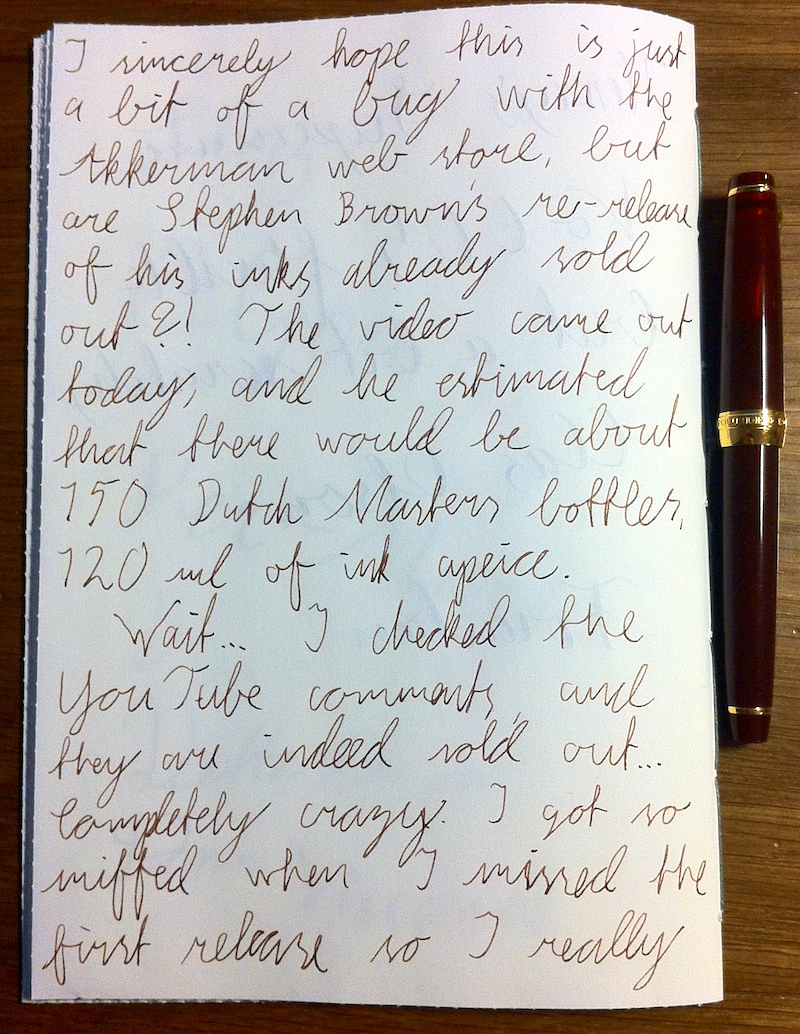 I sincerely hope this is just
a bit of a bug with the
Akkerman web store, but
are Stephen Brown's re-release
of his inks already sold
out?! The video came out
today, and he estimated
that there would be about
150 Dutch Masters bottles,
120 ml of ink apeice.
Wait... I checked the
YouTube comments, and
they are indeed sold out...
Completely crazy. I got so
miffed when I missed the
first release so I really